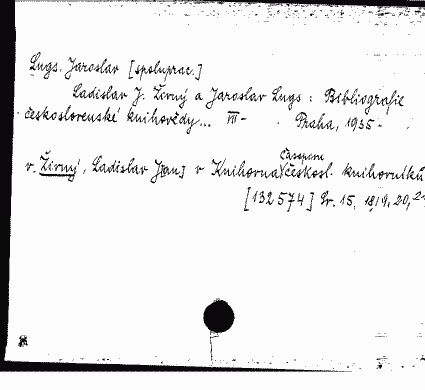 Lugs. Jaroslav [spoluprac.]
Ladislav J. Živný a Jaroslav Lugs : Bibliografie
československé knihovědy... VII - Praha, 1935 -
časopise
v. Živný, Ladislav J[an] v Knihovna českosl. knihovníků
[132574] Pr. 15, 18, 19, 20, 21